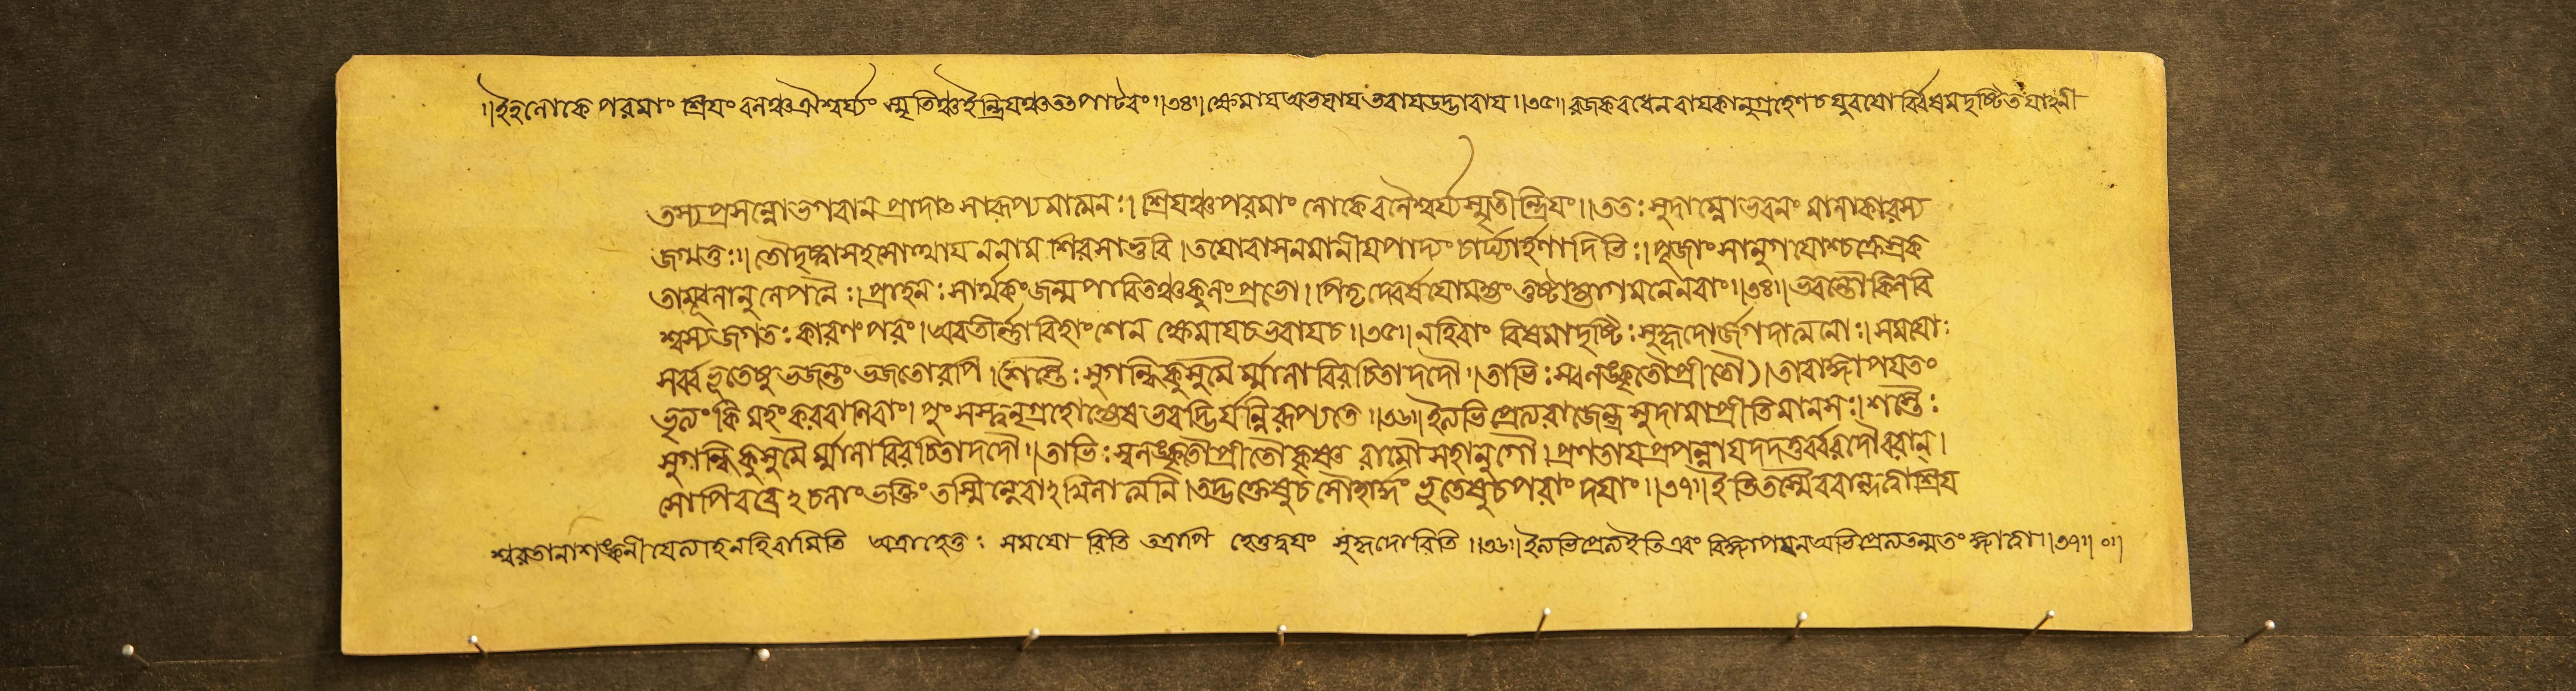 ॥ইহলোকে পরমাং শ্রিযং বলঞ্চঐশ্বর্য্যং স্মৃতিঞ্চইন্দ্রিযঞ্চতৎপাটবং॥৩৪॥ক্ষেমাযঅভযাযভবাযউদ্ভাবায॥৩৫॥রজকবধেনবাযকানুগ্রহেণচযুবযোর্বিষমদৃষ্টিত
তস্যপ্রসন্নোভগবানপ্রাদাৎসারূপ্যমাত্মনঃ।শ্রিযঞ্চপরমাং লোকেবলৈশ্বর্য্যস্মৃতীন্দ্রিযং॥ততঃসুদাম্নোভবনং মালাকারস্য
জগ্মতুঃ॥তৌদৃষ্ট্বাসহসোত্থাযননাম শিরসাভুবি।তযোরাসনমানীযপাদ্যং চার্ঘ্যার্হণাদিভিঃ।পূজাং সানুগযোশ্চক্রেস্রক
তাম্বূলানুলেপনৈঃ।প্রাহনঃসার্থকংজন্মপাবিতঞ্চকুলংপ্রভো।পিতৃদেবর্ষযোমহ্যংতুষ্টাহ্যাগমনেনবাং॥৩৪॥ভবন্তৌকিলবি
শ্বস্যজগতঃকারণংপরং।অবতীর্ণাবিহাংশেন ক্ষেমাযচভবাযচ॥৩৫॥নহিবাং বিষমাদৃষ্টিঃসুহৃদোর্জগদাত্মনোঃ।সমযোঃ
সর্ব্বভূতেষুভজন্তংভজতোরপি।শস্তৈঃসুগন্ধিকুসুমৈ র্ম্মালাবিরচিতাদদৌ।তাভিঃস্বলঙ্কৃতৌপ্রীতৌ)।তাবাজ্ঞাপযতং
ভৃত্যং কিমহংকরবাণিবাং।পুংসস্ত্বনুগ্রহোহ্যেষভবদ্ভির্যন্নিরূপ্যতে॥৩৬॥ইত্যভিপ্রেত্যরাজেন্দ্র সুদামাপ্রীতিমানসঃ।শস্তৈঃ
সুগন্ধিকুসুমৈ র্ম্মালাবিরচিতাদদৌ॥তাভিঃস্বলঙ্কৃতৌপ্রীতৌকৃষ্ণ রামৌসহানুগৌ।প্রণতাযপ্রপন্নাযদদতুর্ব্বরদৌবরান্।
সোপিবব্রেঽচলাংভক্তিংতস্মিন্নেবাঽখিলাত্মনি।তদ্ভক্তেষুচসৌহার্দ্দং ভূতেষুচপরাংদযাং॥৩৭॥ইতিতস্মৈবরান্দত্বাশ্রিয
শ্বরতানাশঙ্কনীযেত্যাহনহিবামিতি অত্রাহেতুঃ সমযো রিতি তত্রাপি হেতুদ্বযং সুহৃদোরিতি॥৩৬॥ইত্যভিপ্রেত্যইতিএবং বিজ্ঞাপযনঅভিপ্রেত্যতন্মতং জ্ঞাত্বা॥৩৭॥০॥